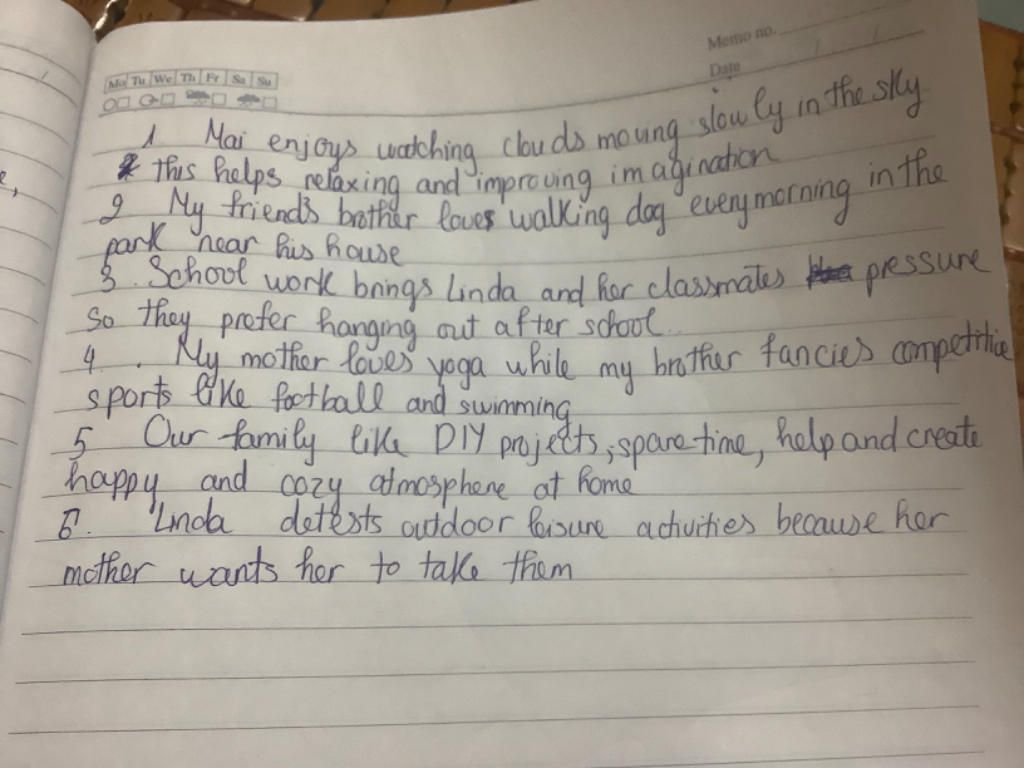 Memo no.
Date
Mo Tu We Th Fr Sa Su
1 Mai enjoys watching clouds moving slowly in the sky
this helps relaxing and improving imagination
2 My friend's brother loves walking dog everymorning in the
park near his house
3. School work brings Linda and her classmates pressure
so they prefer hanging out after school.
4. My mother loves yoga while my brother fancies competitice
sports like football and swimming
5 Our family like DIY projects, spare time, help and create
happy and cozy atmosphere at home
6. Linda detests outdoor leisure activities because her
mother wants her to take them